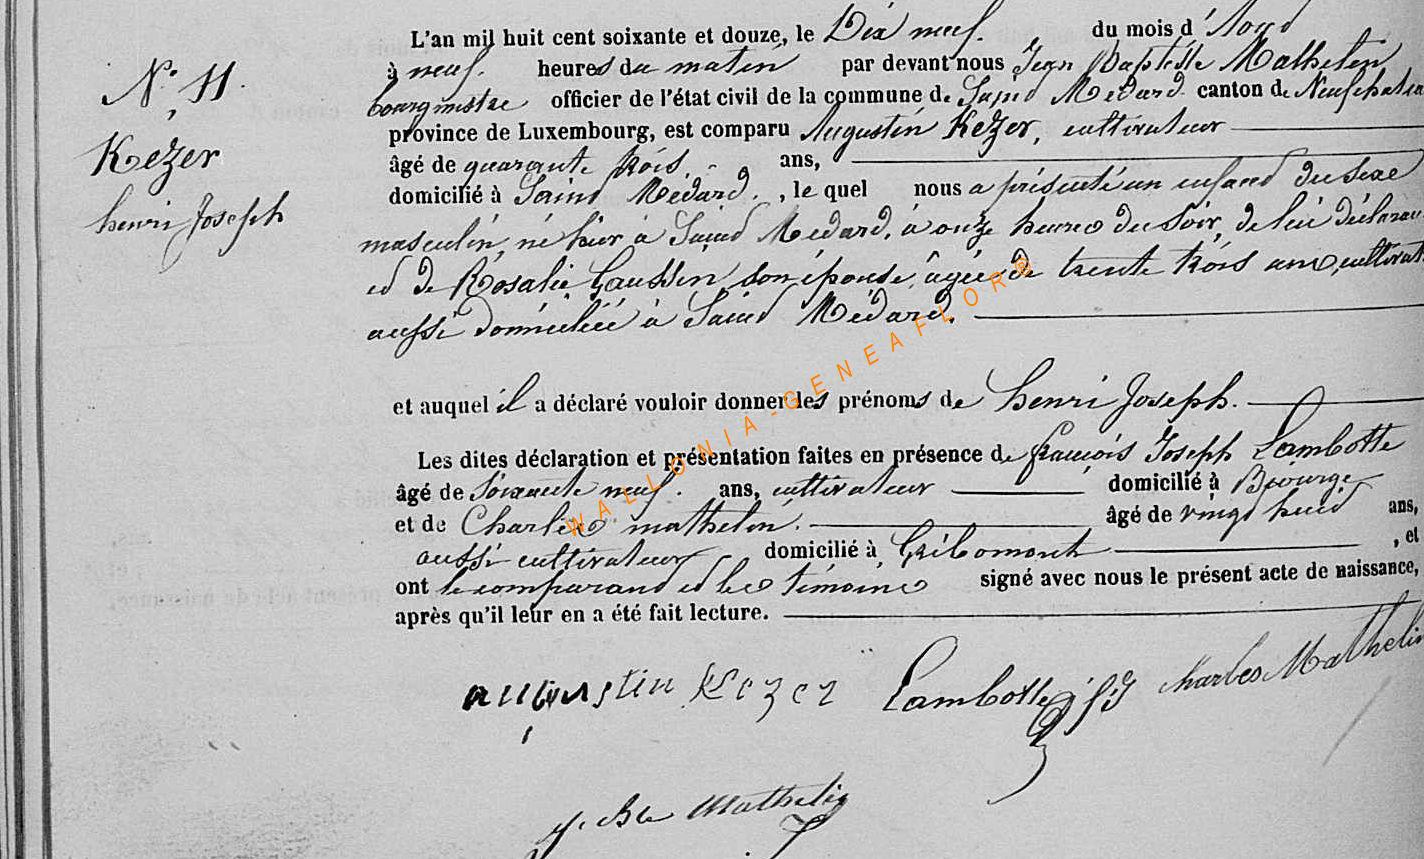 L'an mil huit cent soixante et douze, le Dix neuf. du mois d'Aout
N° 11.
à neuf. heures du matin par devant nous Jean Baptiste Mathelin
bourgmestre officier de l'état civil de la commune de Saint Médard canton de Neufchatea
province de Luxembourg, est comparu Augustin Kezer, cultivateur
Kezer
âgé de quarante trois. ans,
domicilié à Saint Médard. , le quel nous a présenté un enfant du sexe
henri Joseph
masculin, né hier à Saint Médard, à onze heures du soir, de lui déclarant
et de Rosalie Gaussin, son épouse, âgée de trente trois ans, cultivat
aussi domiciliée à Saint Médard.
et auquel il a déclaré vouloir donner les prénoms de henri Joseph.
Les dites déclaration et présentation faites en présence de françois Joseph Lambotte
âgé de soixante neuf. ans, cultivateur domicilié à Biourge
et de Charles mathelin. âgé de vingt huit ans,
aussi cultivateur domicilié à Gribomont , et
ont le comparant et les témoins signé avec nous le présent acte de naissance,
après qu'il leur en a été fait lecture.
augustin Kezer Lambotte fJ Charles Mathelin
J. Bte Mathelin
WALLONIA-GENEAFLOR®